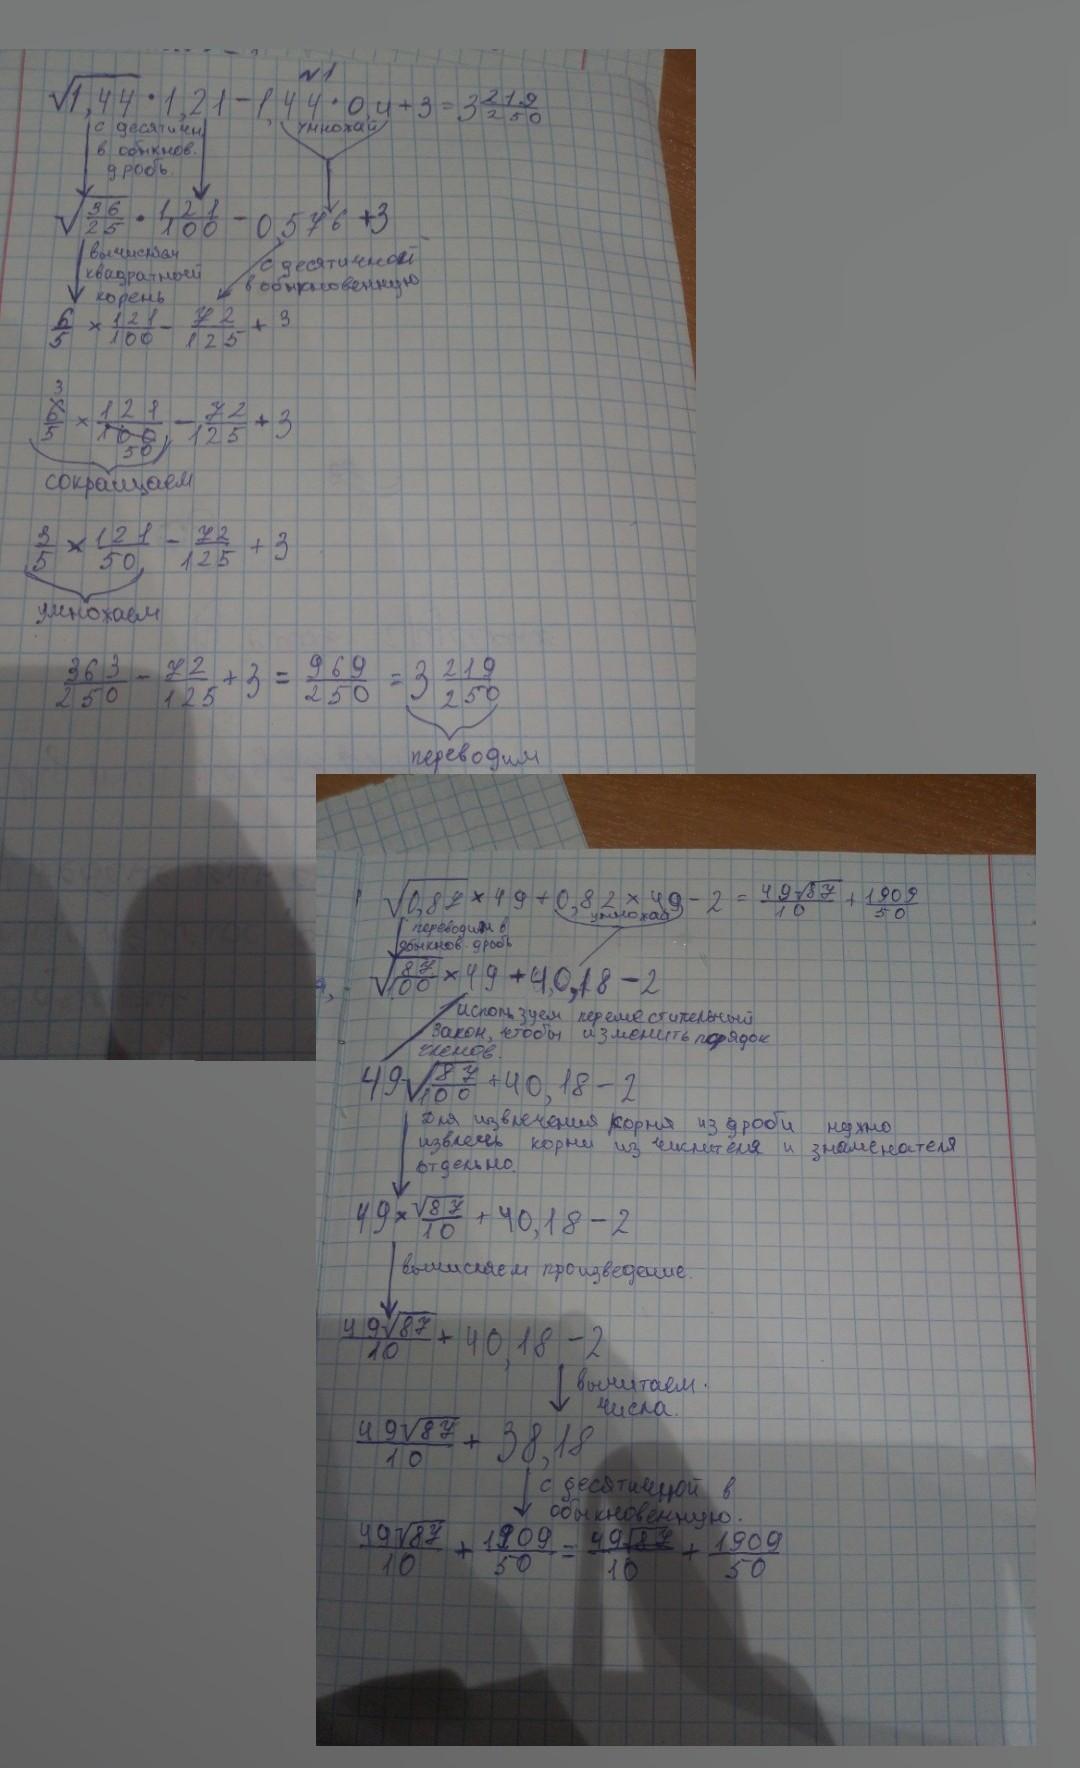 №1
√1,44 · 1,21 - 1,44 · 0,4 + 3 = 3 219/250
с десятичн
в обыкнов.
дробь.
умножай
√36/25 · 121/100 - 0,576 + 3
вычисляй
квадратный
корень
с десятичной
в обыкновенную
6/5 × 121/100 - 72/125 + 3
3
6/5 × 121/100 - 72/125 + 3
50
сокращаем
3/5 × 121/50 - 72/125 + 3
умножаем
363/250 - 72/125 + 3 = 969/250 = 3 219/250
переводим
√0,87 × 49 + 0,82 × 49 - 2 = 49√87/10 + 1909/50
умножай
переводим в
обыкнов. дробь
√87/100 × 49 + 40,18 - 2
используем переместительный
закон, чтобы изменить порядок
членов.
49√87/100 + 40,18 - 2
Для извлечения корня из дроби нужно
извлечь корни из числителя и знаменателя
отдельно.
49 × √87/10 + 40,18 - 2
вычисляем произведение.
49√87/10 + 40,18 - 2
вычитаем.
числа.
49√87/10 + 38,18
с десятичной в
обыкновенную.
49√87/10 + 1909/50 = 49√87/10 + 1909/50